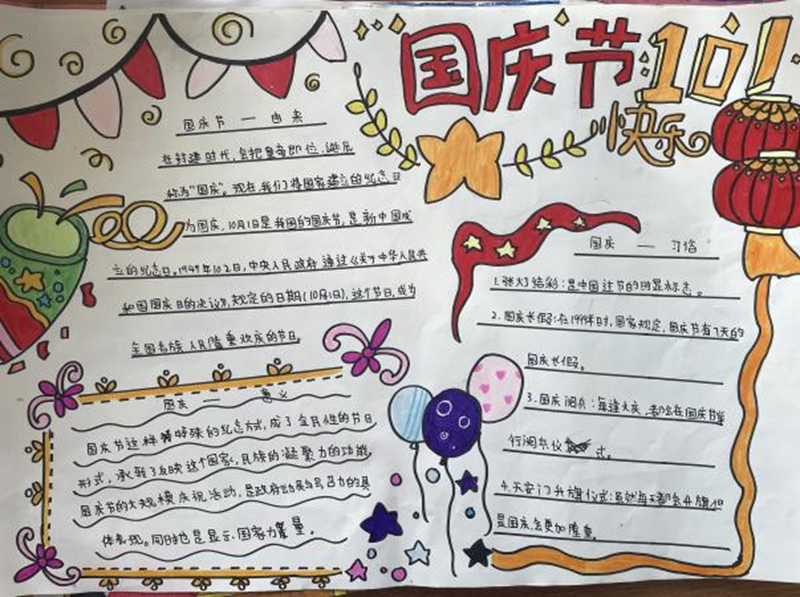 国庆节101
快乐
国庆节 — 由来
在封建时代,会把皇帝即位、诞辰
称为"国庆"。现在,我们将国家建立的纪念日
为国庆,10月1日是我国的国庆节,是新中国成
立的纪念日。1949年10月2日,中央人民政府通过《关于中华人民共
和国国庆日的决议》,规定的日期(10月1日),这个节日,成为
全国各族人民隆重欢庆的节日。
国庆 — 意义
国庆节这种特殊的纪念方式,成了全民性的节日
形式,承载了反映这个国家,民族的凝聚力的功能
国庆节的大规模庆祝活动,是政府动员与号召力的具
体表现。同时也是显示国家力量。
国庆 — 习俗
1.张灯结彩:是中国过节的明显标志。
2.国庆长假:在1999年时,国家规定,国庆节有7天的
国庆长假。
3.国庆阅兵:每逢大庆,都会在国庆节举
行阅兵仪式。
4.天安门升旗仪式:虽然每天都会升旗,但
是国庆会更加隆重。